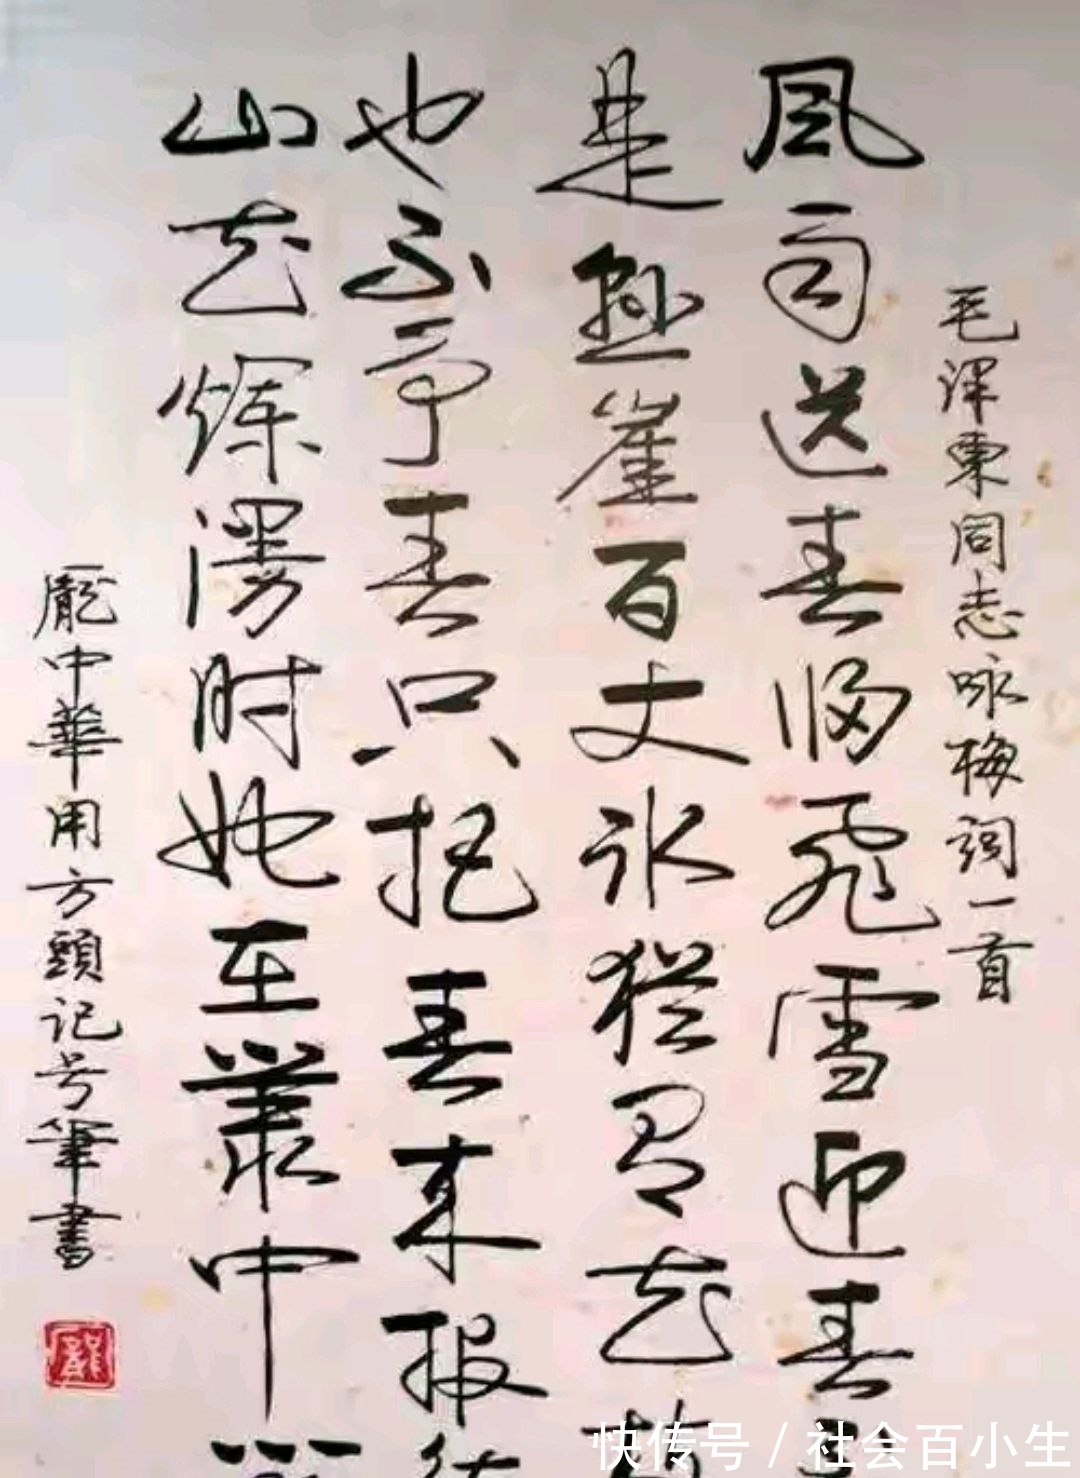 毛泽東同志咏梅词一首
风雨送春归飞雪迎春
是懸崖百丈冰犹有花
也不争春只把春来报
山花烂漫时她在叢中
龐中華用方頭记号筆書
龐
快传号 / 社会百小生